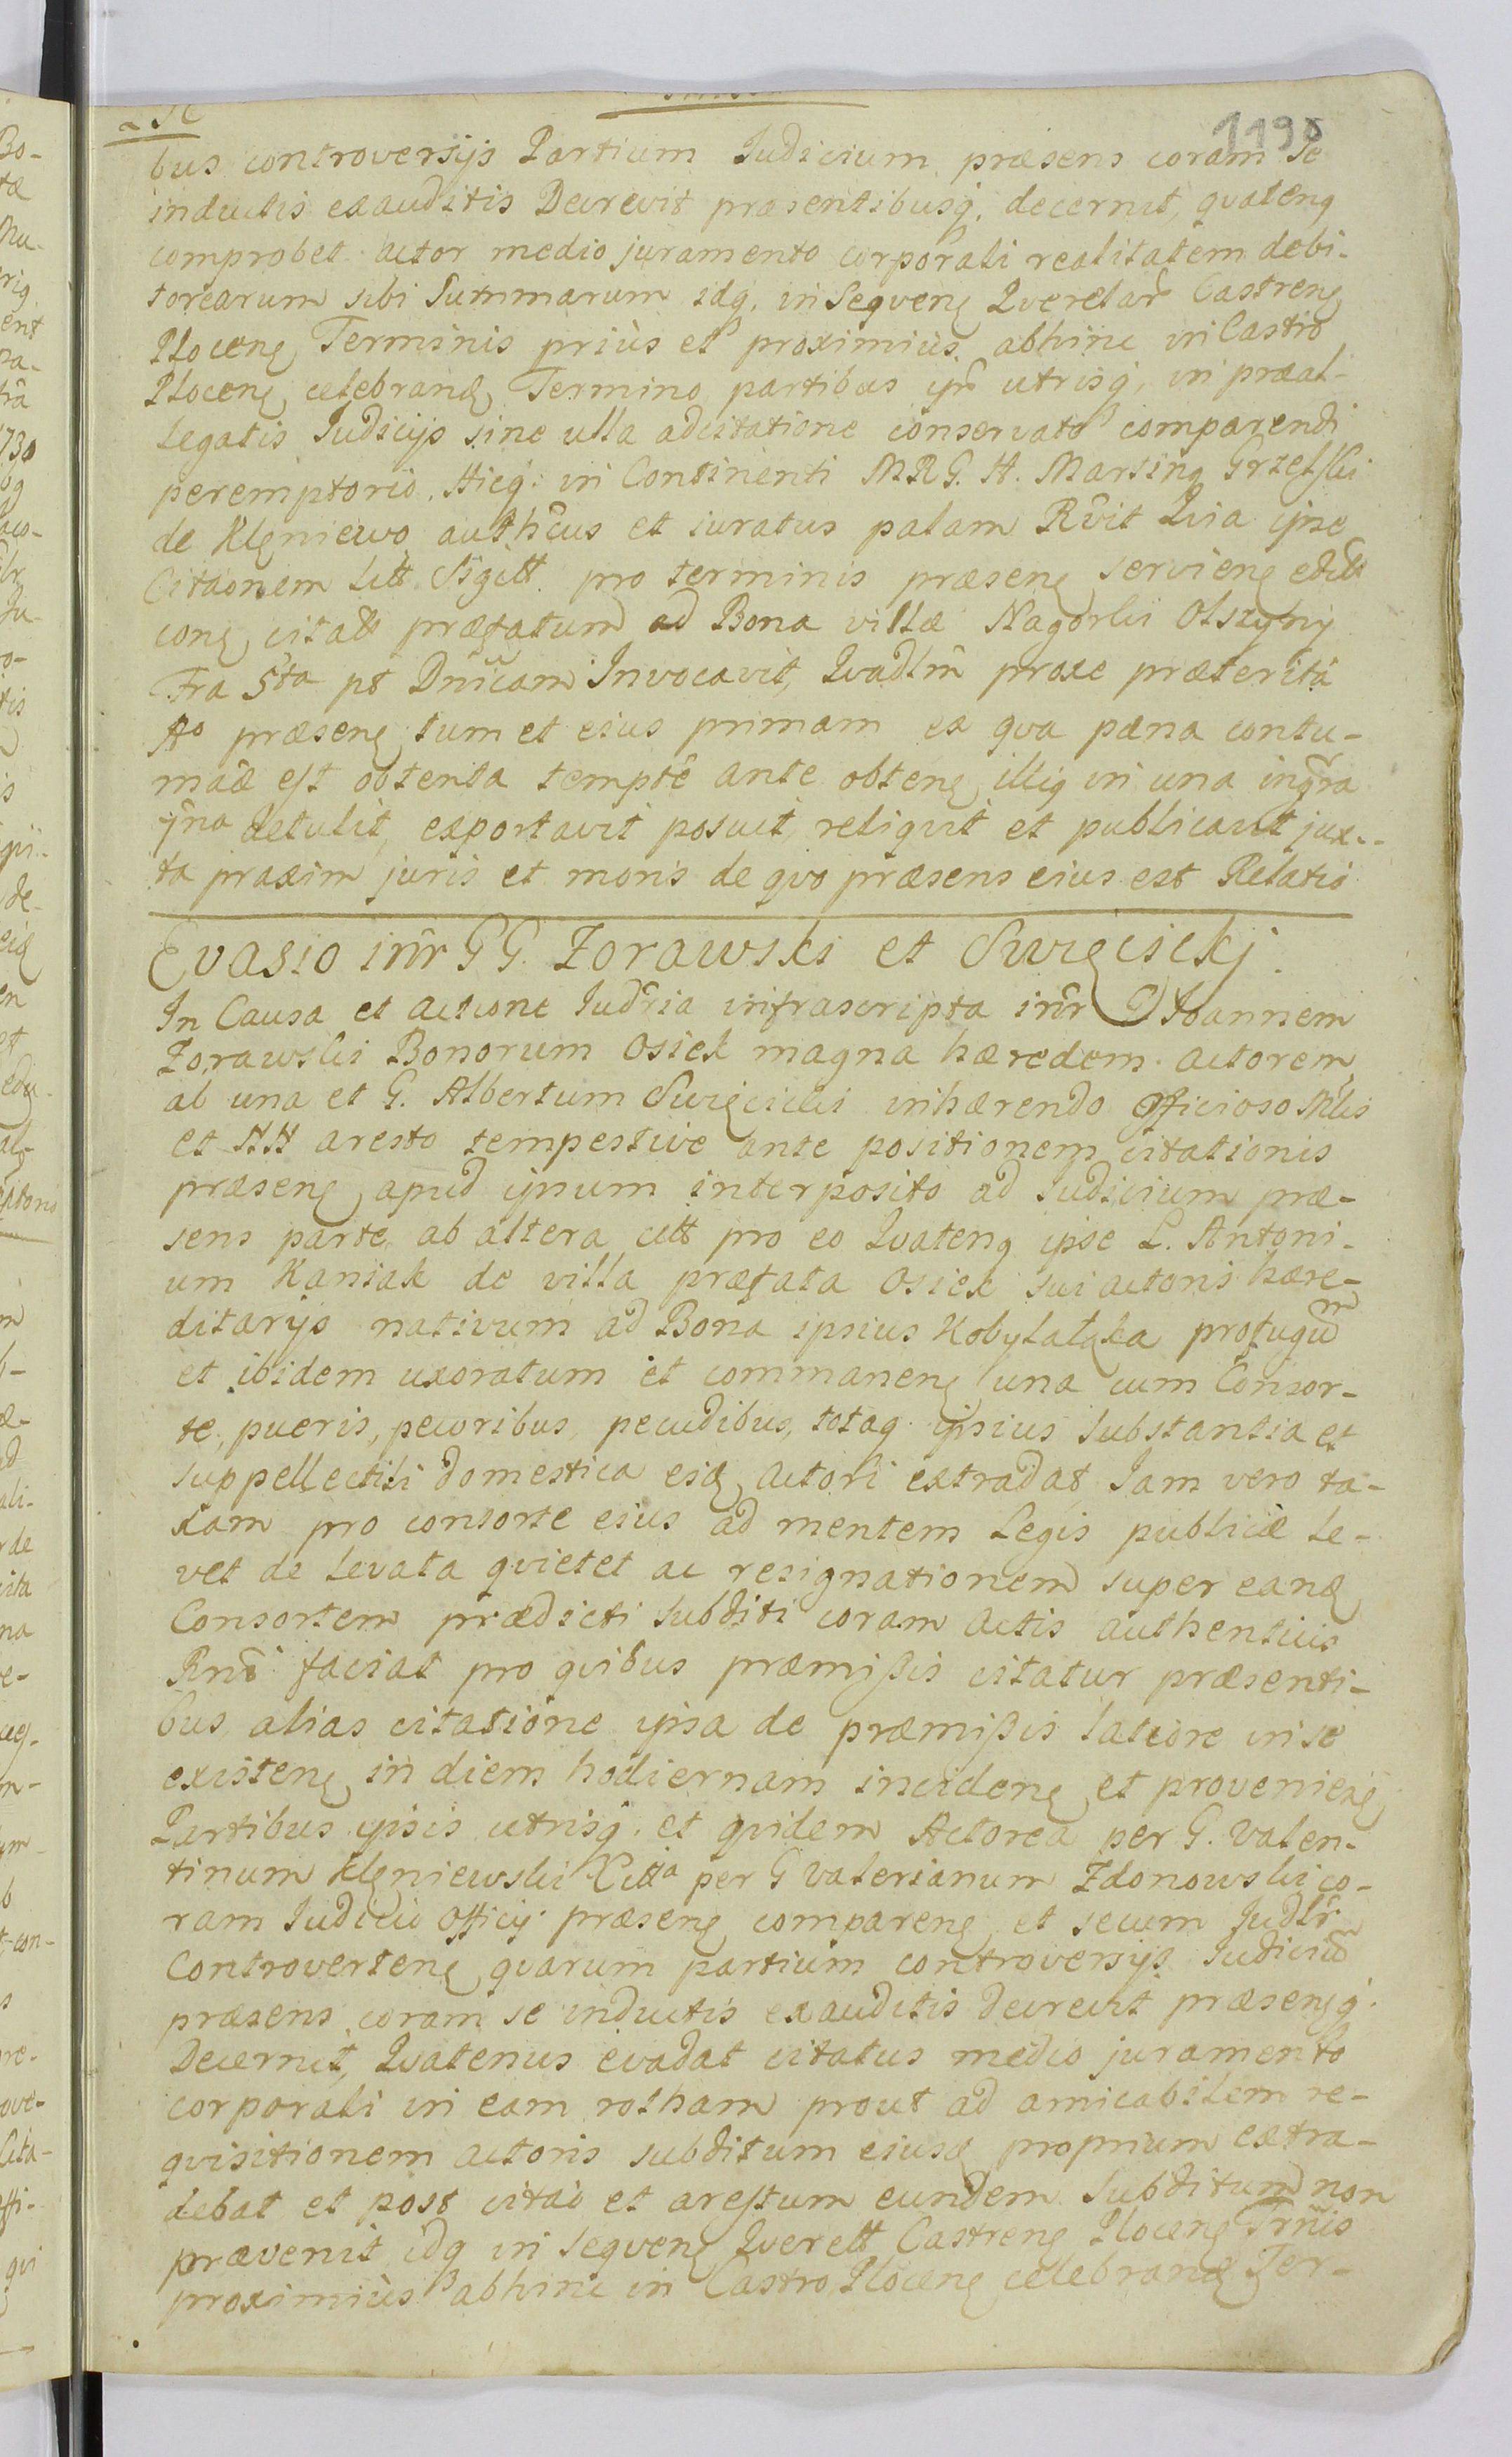 1198
bus controversijs Partium Judicium præsens coram se
inductis exauditis Decrevit præsentibusq. decernit, qvateng
comprobet actor medio juramento corporali realitatem debi-
torearum sibi Summarum idq. in Seqveng Qverelar Castreng
Ploceng Terminis priùs et proximiùs abhinc in Castro
Ploceng celebrand Termino partibus ipñ utrisq. in præal-
legatis Judicijs sine ulla adcitatione conservato comparendi
peremptorio. Hicq: in Continenti MRG. H. Marting Grzelski
de Klęniewo authcus et iuratus palam Rvit Qvia ipse
Citaonem litt Sigill. pro terminis præseng servieng edit
cong citatt præfatum ad Bona villæ Nagorki Olszyny
Fra 5ta pt Dnicam Invocavit, Qvadlm proxe præterità
Ao præseng tum et eius primam ex qva pæna contu-
maã est obtenta tempte ante obteng illiq in una ingra
ipna detulit, exportavit posuit, reliqvit et publicavit jux-
ta praxim juris et moris de qvo præsens eius est Relatio
Evasio intr GG. Zorawski et Swięcickj.
In Causa et actione Judria infrascripta intr G Joannem
Zorawski Bonorum Osiek magna hæredem actorem
ab una et G. Albertum Swięcicki inhærendo officioso Mlis
et NN aresto tempestive ante positionem citationis
præseng apud ipsum interposito ad Judicium præ-
sens parte ab altera citt pro eo Qvateng ipse L. Antoni-
um Kaniak de villa præfata Osiek sui actoris hære-
ditarijs nativum ad Bona ipsius Kobylałąka profugum
et ibidem uxoratum et commaneng una cum Consor-
te, pueris, pecoribus, pecudibus, totaq ipsius substantia et
suppellectili domestica eid actori extradat Jam vero ta-
xam pro consorte eius ad mentem Legis publicæ le-
vet de levata qvietet ac resignationem super eand
Consortem prædicti subditi coram actis authenticis
Rnõ faciat pro qvibus præmißis citatur præsenti-
bus alias citatione ipsa de præmißis latiore in se
existeng in diem hodiernam incideng et provenieng
Partibus ipsis utrisq. et qvidem Actorea per G. Valen-
tinum Klęniewski Citta per G Valerianum Zdonowski co-
ram Judicio officij præseng compareng et secum Judlr
Controverteng qvarum partium controversijs Judicium
præsens coram se inductis exauditis decrevit præsengq.
Decernit, Qvatenus evadat citatus medio juramento
corporali in eam rotham prout ad amicabilem re-
qvisitionem actoris subditum eiusd proprium extra-
debat et post citaõ et arestum eundem subditum non
prævenit idq in seqveng Qverell Castreng Ploceng Trñis
proximiùs abhinc in Castro Ploceng celebrand Ter-